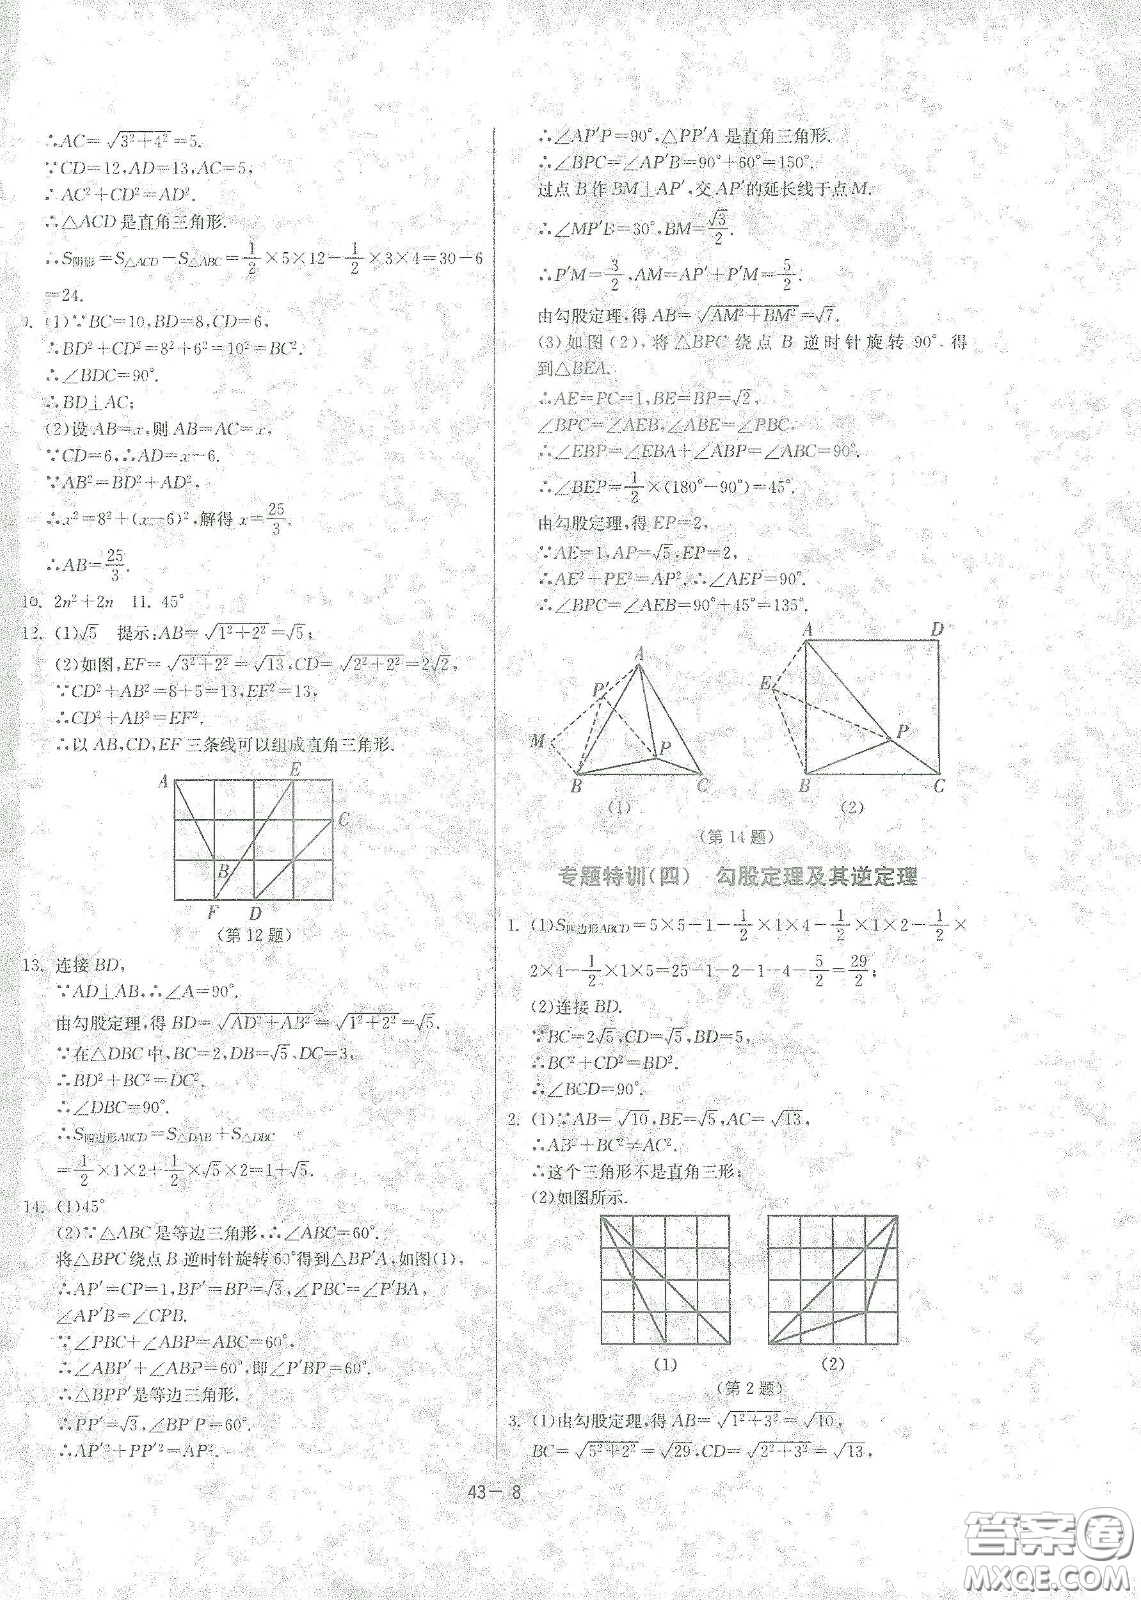 ∴AC=√(3²+4²)=5.
∵CD=12,AD=13,AC=5,
∴AC²+CD²=AD².
∴△ACD是直角三角形.
∴S阴影=S△ACD−S△ABC=1/2×5×12−1/2×3×4=30−6
=24.
9. (1)∵BC=10,BD=8,CD=6,
∴BD²+CD²=8²+6²=10²=BC².
∴∠BDC=90°.
∴BD⊥AC;
(2)设AB=x,则AB=AC=x,
∵CD=6,∴AD=x−6.
∵AB²=BD²+AD²,
∴x²=8²+(x−6)²,解得x=25/3.
∴AB=25/3.
10. 2n²+2n 11. 45°
12. (1)√5 提示:AB=√(1²+2²)=√5;
(2)如图,EF=√(3²+2²)=√13,CD=√(2²+2²)=2√2,
∵CD²+AB²=8+5=13,EF²=13,
∴CD²+AB²=EF².
∴以AB,CD,EF三条线可以组成直角三角形.
A E
C
B
F D
(第12题)
13. 连接BD,
∵AD⊥AB,∴∠A=90°.
由勾股定理,得BD=√(AD²+AB²)=√(1²+2²)=√5.
∵在△DBC中,BC=2,DB=√5,DC=3,
∴BD²+BC²=DC².
∴∠DBC=90°.
∴S四边形ABCD=S△DAB+S△DBC
=1/2×1×2+1/2×√5×2=1+√5.
14. (1)45°
(2)∵△ABC是等边三角形,∴∠ABC=60°.
将△BPC绕点B逆时针旋转60°得到△BP′A,如图(1),
∴AP′=CP=1,BP′=BP=√3,∠PBC=∠P′BA,
∠AP′B=∠CPB.
∵∠PBC+∠ABP=ABC=60°,
∴∠ABP′+∠ABP=60°,即∠P′BP=60°.
∴△BPP′是等边三角形.
∴PP′=√3,∠BP′P=60°.
∴AP′²+PP′²=AP².
∴∠AP′P=90°,△PP′A是直角三角形.
∴∠BPC=∠AP′B=90°+60°=150°.
过点B作BM⊥AP′,交AP′的延长线于点M.
∴∠MP′B=30°,BM=√3/2.
∴P′M=3/2,AM=AP′+P′M=5/2.
由勾股定理,得AB=√(AM²+BM²)=√7.
(3)如图(2),将△BPC绕点B逆时针旋转90°,得
到△BEA.
∴AE=PC=1,BE=BP=√2,
∠BPC=∠AEB,∠ABE=∠PBC,
∴∠EBP=∠EBA+∠ABP=∠ABC=90°.
∴∠BEP=1/2×(180°−90°)=45°.
由勾股定理,得EP=2,
∵AE=1,AP=√5,EP=2,
∴AE²+PE²=AP²,∴∠AEP=90°.
∴∠BPC=∠AEB=90°+45°=135°.
A
P′
M
P
B C
(1)
A D
E
P
B C
(2)
(第14题)
专题特训(四) 勾股定理及其逆定理
1. (1)S四边形ABCD=5×5−1−1/2×1×4−1/2×1×2−1/2×
2×4−1/2×1×5=25−1−2−1−4−5/2=29/2;
(2)连接BD.
∵BC=2√5,CD=√5,BD=5,
∴BC²+CD²=BD².
∴∠BCD=90°.
2. (1)∵AB=√10,BE=√5,AC=√13,
∴AB²+BC²≠AC².
∴这个三角形不是直角三形;
(2)如图所示.
(1)
(2)
(第2题)
3. (1)由勾股定理,得AB=√(1²+3²)=√10,
BC=√(5²+2²)=√29,CD=√(2²+3²)=√13,
43−8
答案卷
MXQE.COM